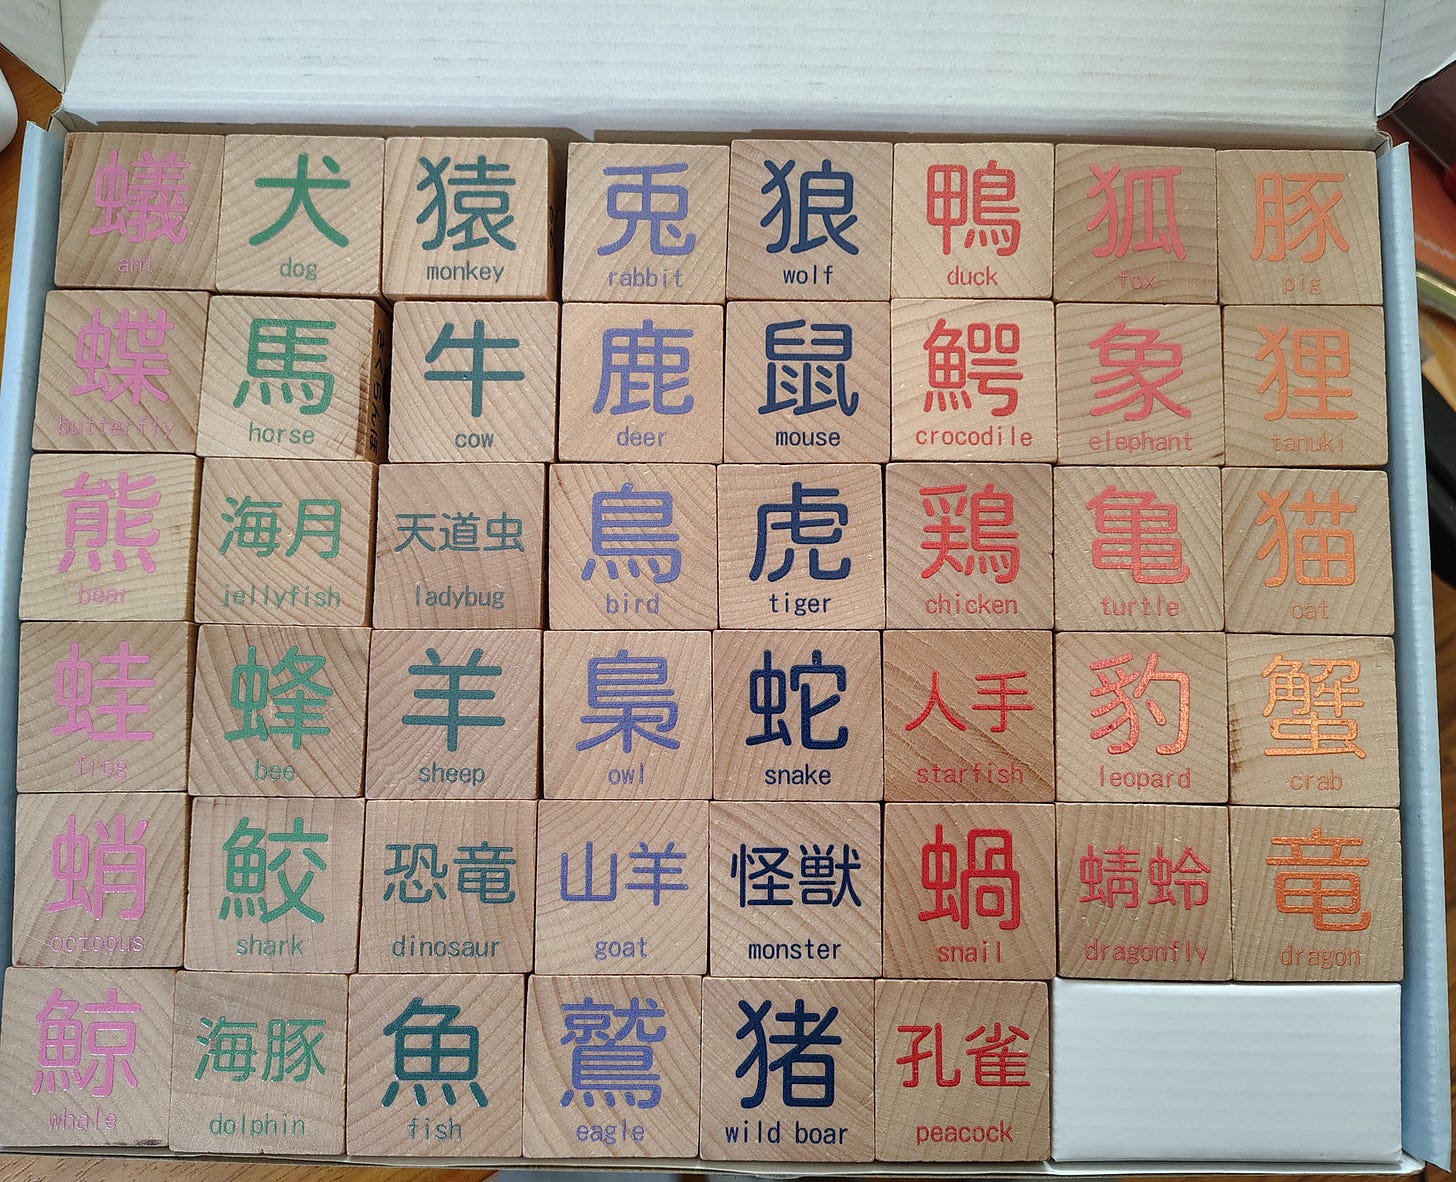 蟻
ant
犬
dog
猿
monkey
兎
rabbit
狼
wolf
鴨
duck
狐
fox
豚
pig
蝶
butterfly
馬
horse
牛
cow
鹿
deer
鼠
mouse
鰐
crocodile
象
elephant
狸
tanuki
熊
bear
海月
jellyfish
天道虫
ladybug
鳥
bird
虎
tiger
鶏
chicken
亀
turtle
猫
cat
蛙
frog
蜂
bee
羊
sheep
梟
owl
蛇
snake
人手
starfish
豹
leopard
蟹
crab
蛸
octopus
鮫
shark
恐竜
dinosaur
山羊
goat
怪獣
monster
蝸
snail
蜻蛉
dragonfly
竜
dragon
鯨
whale
海豚
dolphin
魚
fish
鷲
eagle
猪
wild boar
孔雀
peacock